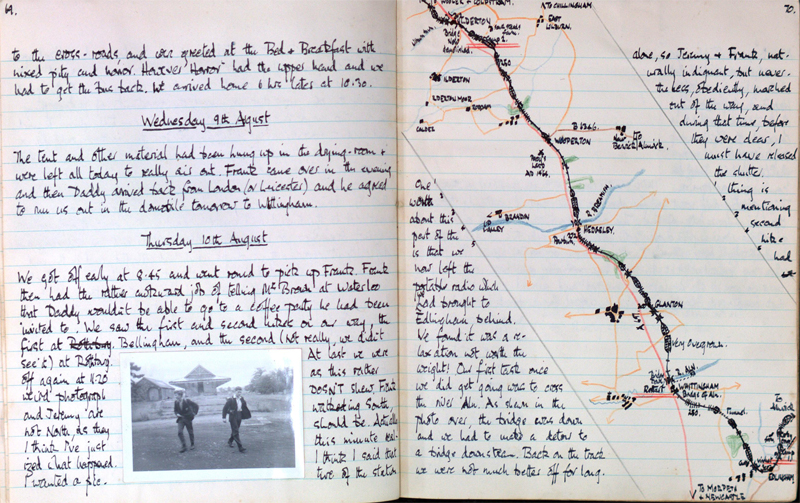 19.
to the cross-roads, and was greeted at the Bed & Breakfast with
mixed pity and horror. However, 'Horror' had the upper hand and we
had to get the bus back. We arrived home 6 hrs later at 10.30.
Wednesday 9th August
The tent and other material had been hung up in the drying-room &
were left all today to really air out. Frantz came over in the evening
and then Daddy arrived back from London (or Leicester) and he agreed
to run us out in the tomorrow to Whittingham.
Thursday 10th August
We got off early at 8.45 and went round to pick up Frantz. Frantz
then had the rather awkward job of telling Mrs Brown at Waterloo
that Daddy wouldn't be able to go to a coffee party he had been
invited to. We saw the first and second hitch on our way, the
first at Bellingham, and the second (not really, we didn't
see it) at Rothbury.
off again at 11.20
weird photograph
and Jeremy are
not North, as they
I think I've just
ized what happened.
I wanted a pic-
At last we were
as this rather
DOESN'T shew, Frantz
walking South,
should be. Actually
this minute real-
I think I said that
ture of the station
20.
alone, so Jeremy & Frantz, nat-
urally indignant, but never-
theless, obediently, marched
out of the way, and
during that time, before
they were clear, I
must have released
the shutter.
thing is
mentioning
second
hike
had
One
worth
about this
part of the
is that we
now left the
portable radio which
had brought to
Edlingham, behind.
We found it was a re-
laxation not worth the
weight! Our first task once
we did get going was to cross
the river Aln. As shewn in the
photo over, the bridge was down
and we had to make a detour to
a bridge downstream. Back on the track
we were not much better off for long.
TO WOOLER & COLDSTREAM
TO CHILLINGHAM
ILDERTON
EAST LILBURN
ILDERTON
ILDERTON MOOR
RODDAM
CALDER
TO B1346
WOOPERTON
BATTLE
AD 1464
BRANDON
R. BREAMISH
HEDGELEY
POWBURN
GLANTON
A697
Very overgrown.
R. Aln
WHITTINGHAM
Bridge of Aln
Tunnel
To Alnwick
EDLINGHAM
TO MORPETH & NEWCASTLE